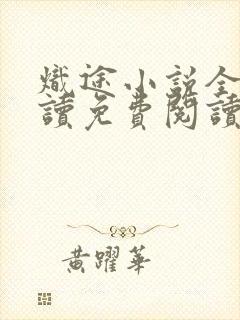 熾途小說全
讀免費閱讀
黃躍華